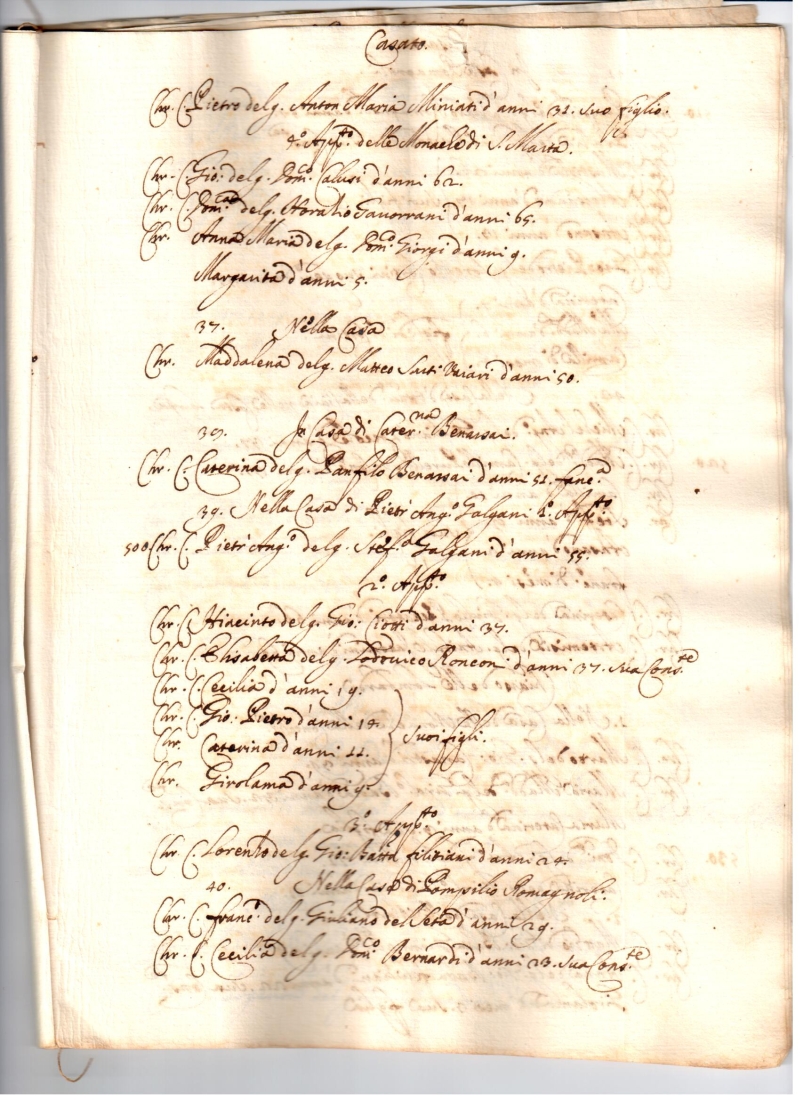 Casato.
Chr. C. Pietro del q. Anton Maria Miniati d'anni 31. suo figlio.
4.° App.to delle Monache di S. Marta.
Chr. C. Gio: del q. Dom.co Calusi d'anni 62.
Chr. C. Dom.ca del q. Horatio Gavorrani d'anni 65.
Chr. Anna Maria del q. Dom.co Giorgi d'anni 9.
Margarita d'anni 5.
37. Nella Casa
Chr. Maddalena del q. Matteo Sarti Vaiari d'anni 50.
39. In Casa di Cater.na Benassai.
Chr. C. Caterina del q. Panfilo Benassai d'anni 51. fanc.a
39. Nella Casa di Pietr' Ang.o Galgani 1.° App.to
500 Chr. C. Pietr' Ang.o del q. Stef.o Galgani d'anni 55.
2.° App.to
Chr. C. Hiacinto del q. Gio: Ciotti d'anni 37.
Chr. C. Elisabetta del q. Lodovico Ronconi d'anni 37. sua Cons.te
Chr. C. Cecilia d'anni 19.
Chr. C. Gio: Pietro d'anni 14. suoi figli.
Chr. Caterina d'anni 11.
Chr. Girolama d'anni 9.
3.° App.to
Chr. C. Lorenzo del q. Gio: Batta filiziani d'anni 24.
40. Nella Casa di Pompilio Romagnoli.
Chr. C. franc.o del q. Giuliano del Seta d'anni 29.
Chr. C. Cecilia del q. Dom.co Bernardi d'anni 23. sua Cons.te